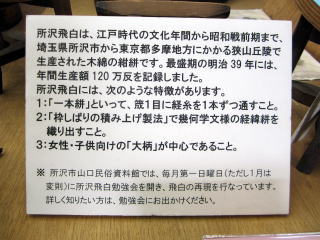 所沢飛白は、江戸時代の文化年間から昭和戦前期まで、
埼玉県所沢市から東京都多摩地方にかかる狭山丘陵で
生産された木綿の紺絣です。最盛期の明治39年には、
年間生産額120万反を記録しました。
所沢飛白には、次のような特徴があります。
1:「一本絣」といって、筬1目に経糸を1本ずつ通すこと。
2:「枠しばりの積み上げ製法」で幾何学文様の経緯絣を
織り出すこと。
3:女性・子供向けの「大柄」が中心であること。
※ 所沢市山口民俗資料館では、毎月第一日曜日(ただし1月は
変則)に所沢飛白勉強会を開き、飛白の再現を行なっています。
詳しく知りたい方は、勉強会にお出かけください。